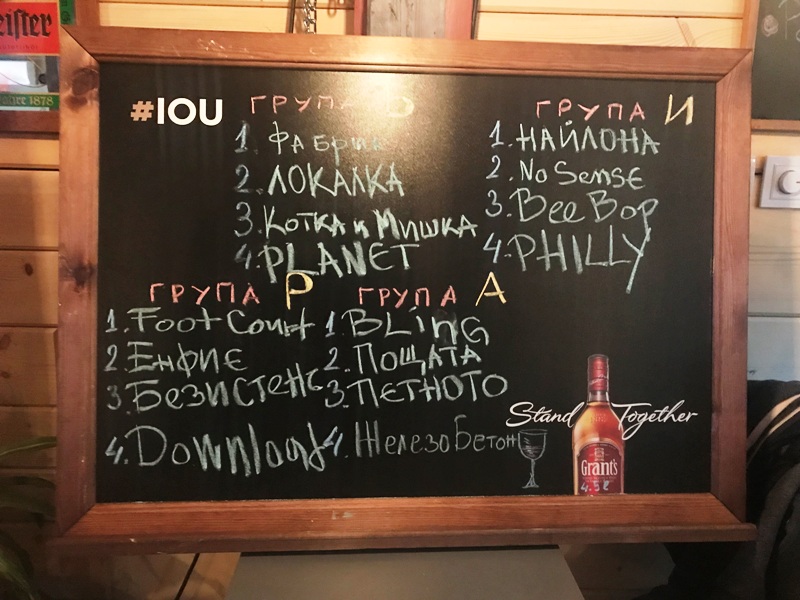 eister
since 1878
#IOU
ГРУПА
1. Фабрик
2. ЛОКАЛКА
3. КОТКА и МИШКА
4. PLANET
ГРУПА И
1. НАЙЛОНА
2. No SENSE
3. Bee Bop
4. PHILLY
ГРУПА Р
1. Foot Court
2. ЕНФИЕ
3. БЕЗИСТЕНС
4. Download
ГРУПА А
1. BLiNG
2. ПОЩАТА
3. ПЕТНОТО
4. Железо Бетон
Stand Together
Grant's